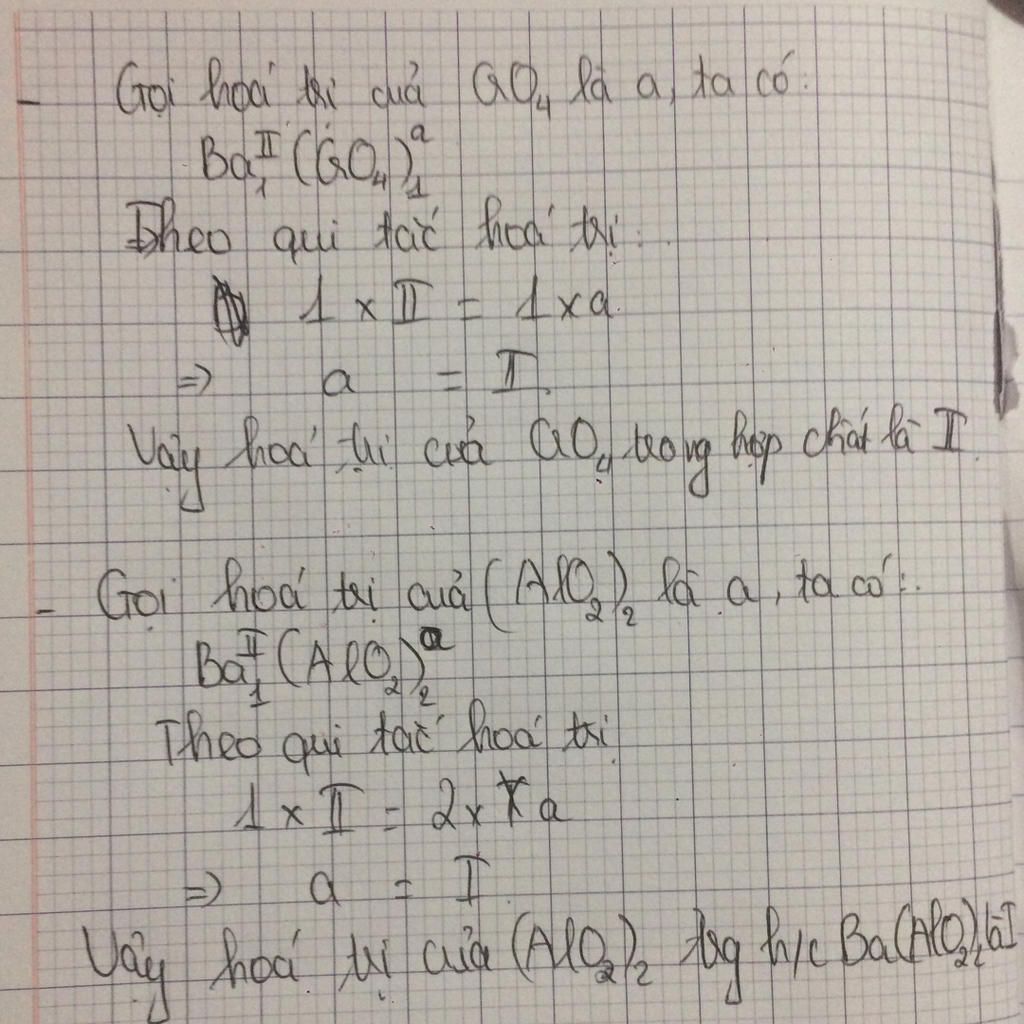 - Gọi hoá trị của CrO₄ là a, ta có:
Ba₁ᴵᴵ(CrO₄)₁ᵃ
Theo qui tắc hoá trị:
1 x II = 1 x a
=> a = II.
Vậy hoá trị của CrO₄ trong hợp chất là II.
- Gọi hoá trị của (AlO₂)₂ là a, ta có:
Ba₁ᴵᴵ(AlO₂)₂ᵃ
Theo qui tắc hoá trị
1 x II = 2 x a
=> a = I
Vậy hoá trị của (AlO₂)₂ trg h/c Ba(AlO₂)₂ là I